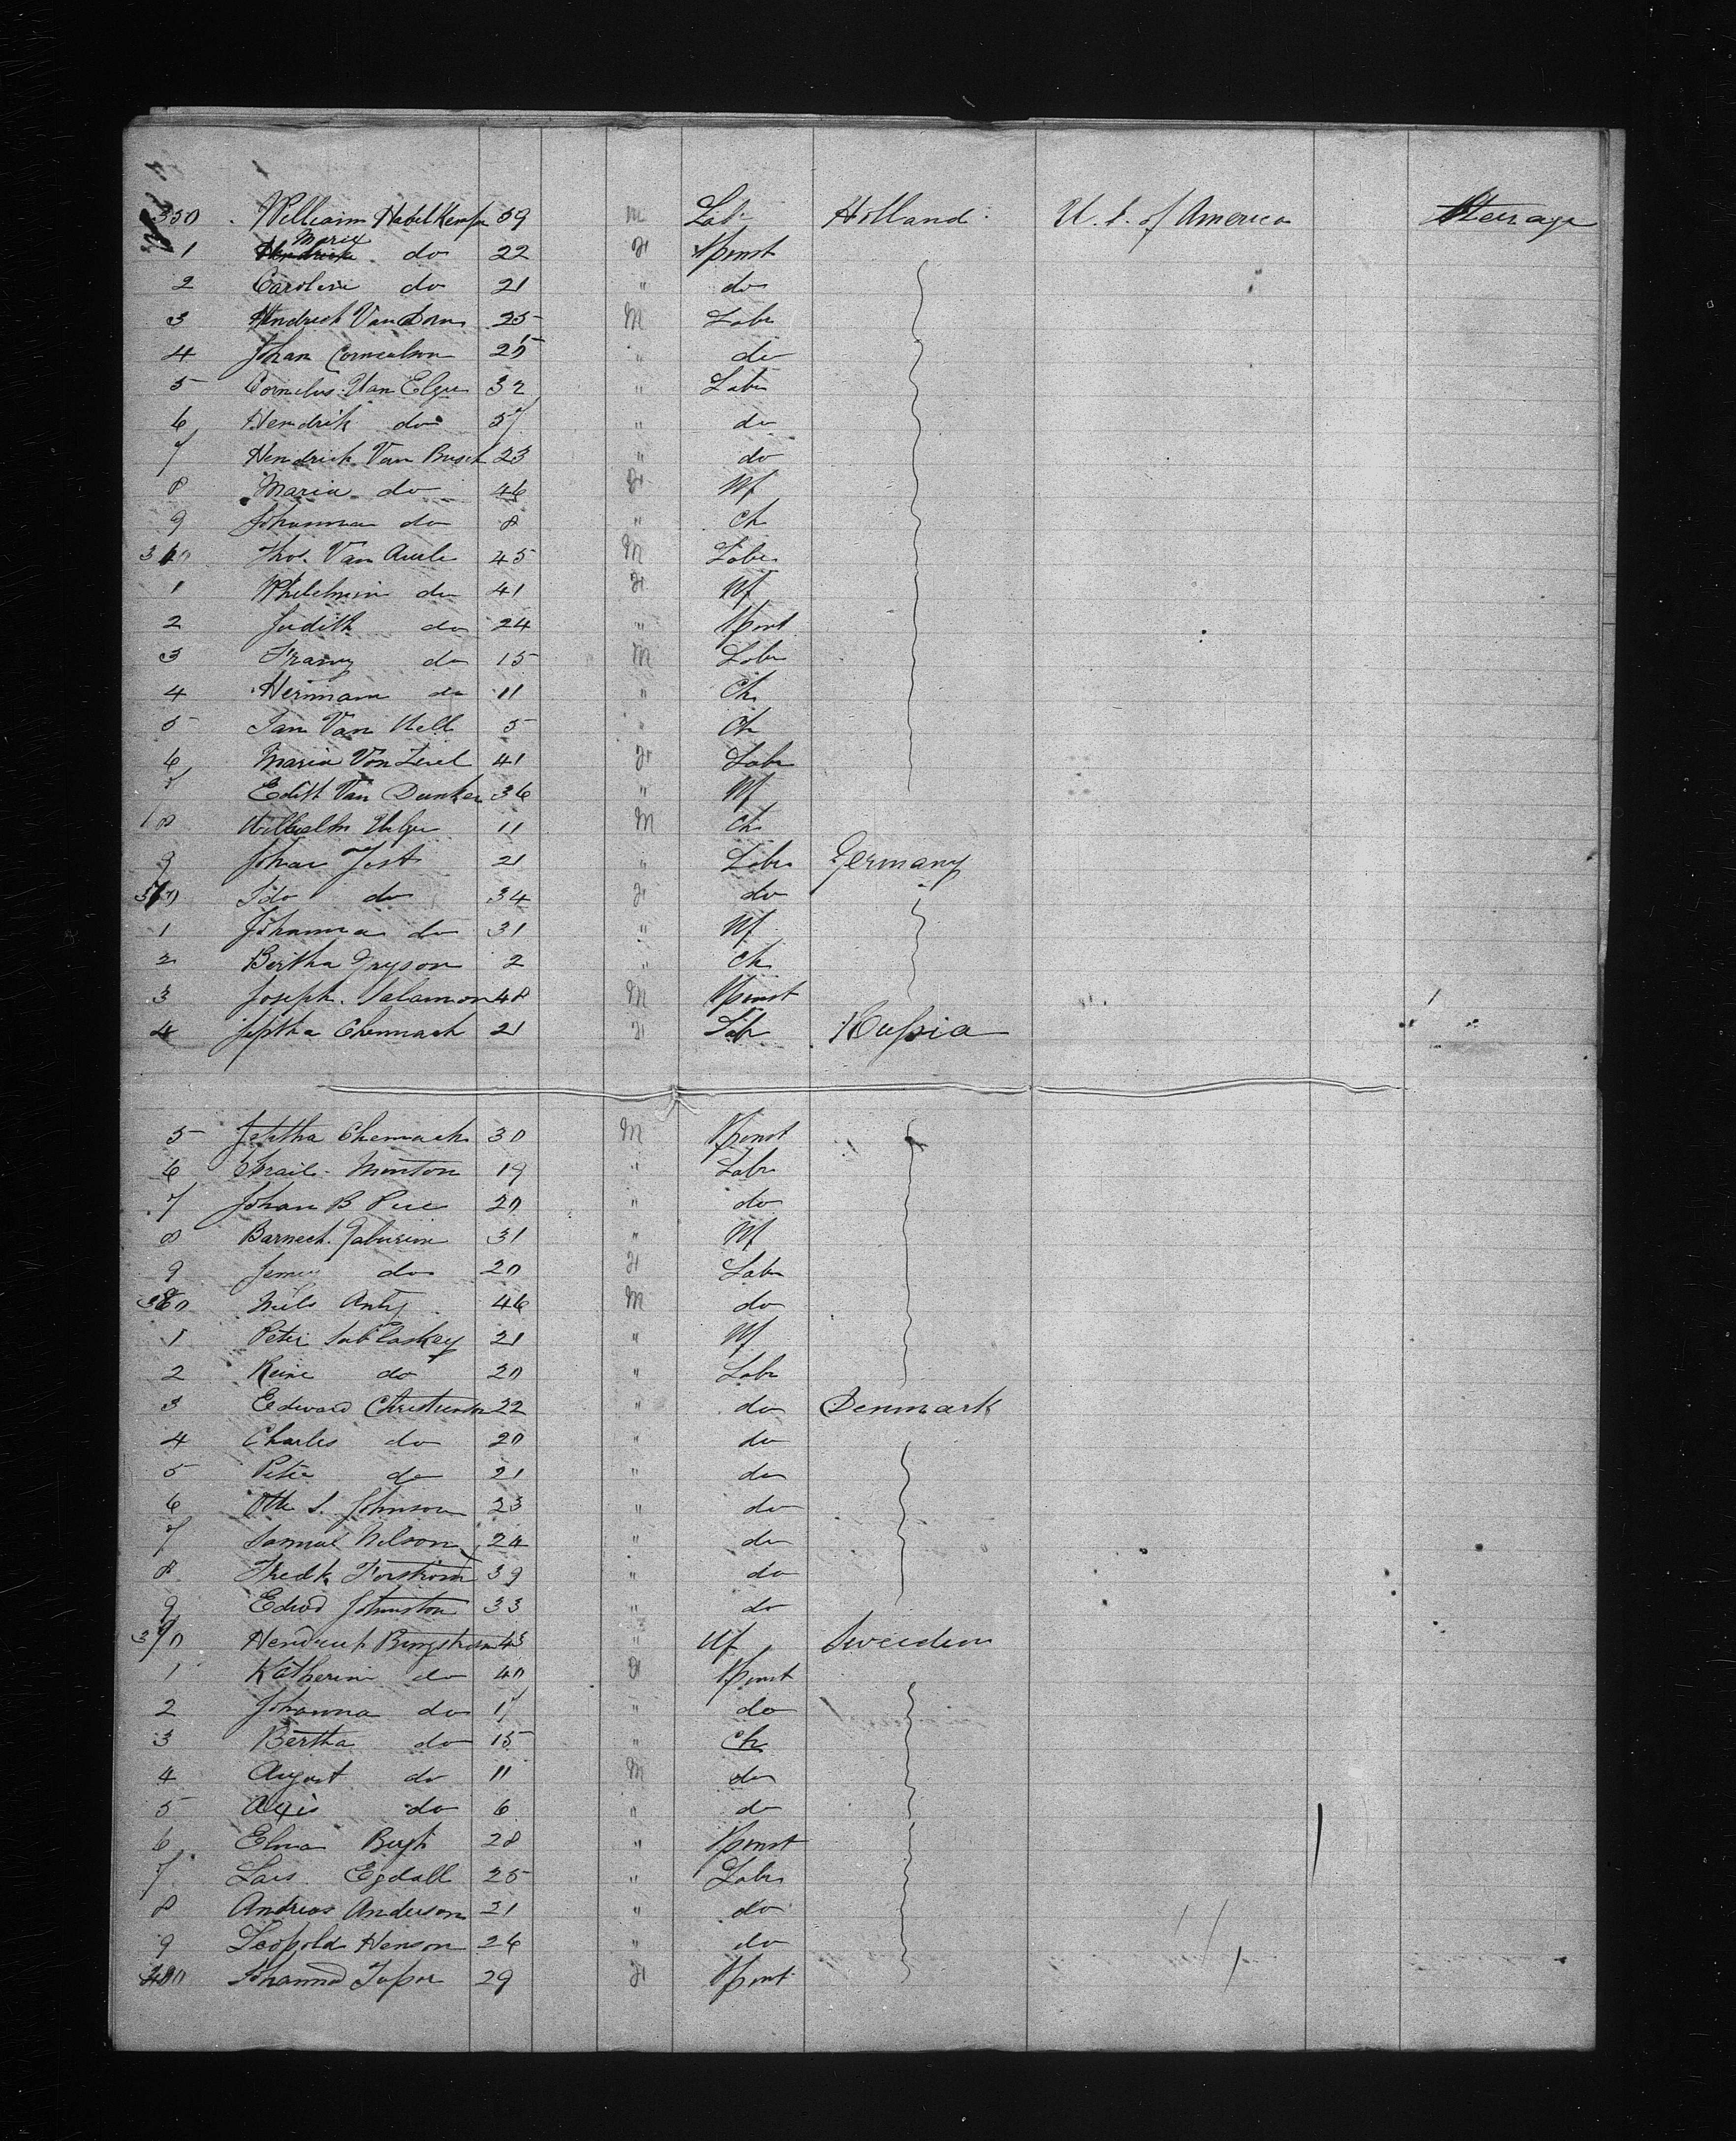 350 William Habelkemp 59 m Lab Holland U. S. of America Steerage
Maria
1 do 22 F Spinst
2 Caroline do 21 " do
3 Hendrick Van Dorn 25 M Labr
4 Johan Cornealson 25 " do
5 Cornelus Van Elger 32 " Labr
6 Hendrik do 37 " do
7 Hendrick Van Busch 23 " do
8 Maria do 46 F Wf
9 Johanna do 8 " Ch
360 Thos. Van Aurle 45 M Labr
1 Whilelmin do 41 F Wf
2 Judith do 24 " Spinst
3 Frany do 15 M Labr
4 Hermann do 11 " Ch
5 Jan Van Well 5 " Ch
6 Maria Von Zeiel 41 F Labr
7 Edith Van Dunker 36 " Wf
8 Wilhelm 11 M Ch
9 Johan Jost 21 " Labr Germany
370 Ida do 34 F do
1 Johanna do 31 " Wf
2 Bertha Gryson 2 " Ch
3 Joseph Salamon 48 M Spinst
4 Jeptha Chemach 21 F Labr Russia
5 Jeptha Chemach 30 M Spinst
6 Israil Minton 19 " Labr
7 Johan B 20 " do
8 Barnech 31 " Wf
9 Jenny do 20 F Labr
380 Niels Anty 46 M do
1 Peter Sablaskey 21 " Wf
2 Reine do 20 " Labr
3 Edward Christienson 22 " do Denmark
4 Charles do 20 " do
5 Peter do 21 " do
6 Otto S. Johnson 23 " do
7 Samuel Nelson 24 " do
8 Fredk Forstrom 39 " do
9 Edwd Johnston 33 " do
390 Bergstrom 43 " Wf Sweeden
1 Katherin do 40 F Spinst
2 Johanna do 17 " do
3 Bertha do 15 " Ch
4 August do 11 M do
5 Axis do 6 " do
6 Elma Bergh 28 " Spinst
7 Lars Egdall 25 " Labr
8 Andreas Anderson 21 " do
9 Leopold Henson 26 " do
400 Johanna 29 F Spinst